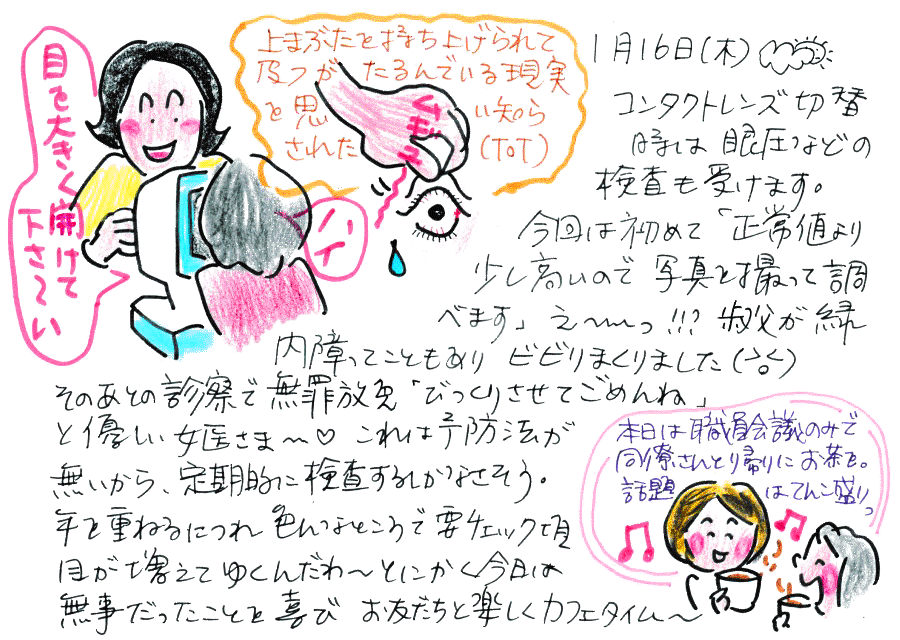 1月16日(木)
コンタクトレンズ切替
時は眼圧などの
検査も受けます。
今回は初めて「正常値より
少し高いので写真を撮って調
べます」え〜〜っ!!! 叔父が緑
内障ってこともあり ビビりまくりました
そのあとの診察で無罪放免「びっくりさせてごめんね」
と優しい女医さま〜♡ これは予防法が
無いから、定期的に検査するしかなさそう。
年を重ねるにつれ色んなところで要チェック項
目が増えてゆくんだわ〜とにかく今日は
無事だったことを喜び お友だちと楽しくカフェタイム〜
目を大きく開けて
下さ〜い
ハイ
上まぶたを持ち上げられて
皮フがたるんでいる現実
を思い知ら
された(ToT)
本日は職員会議のみで
同僚さんと帰りにお茶を。
話題はてんこ盛りっ